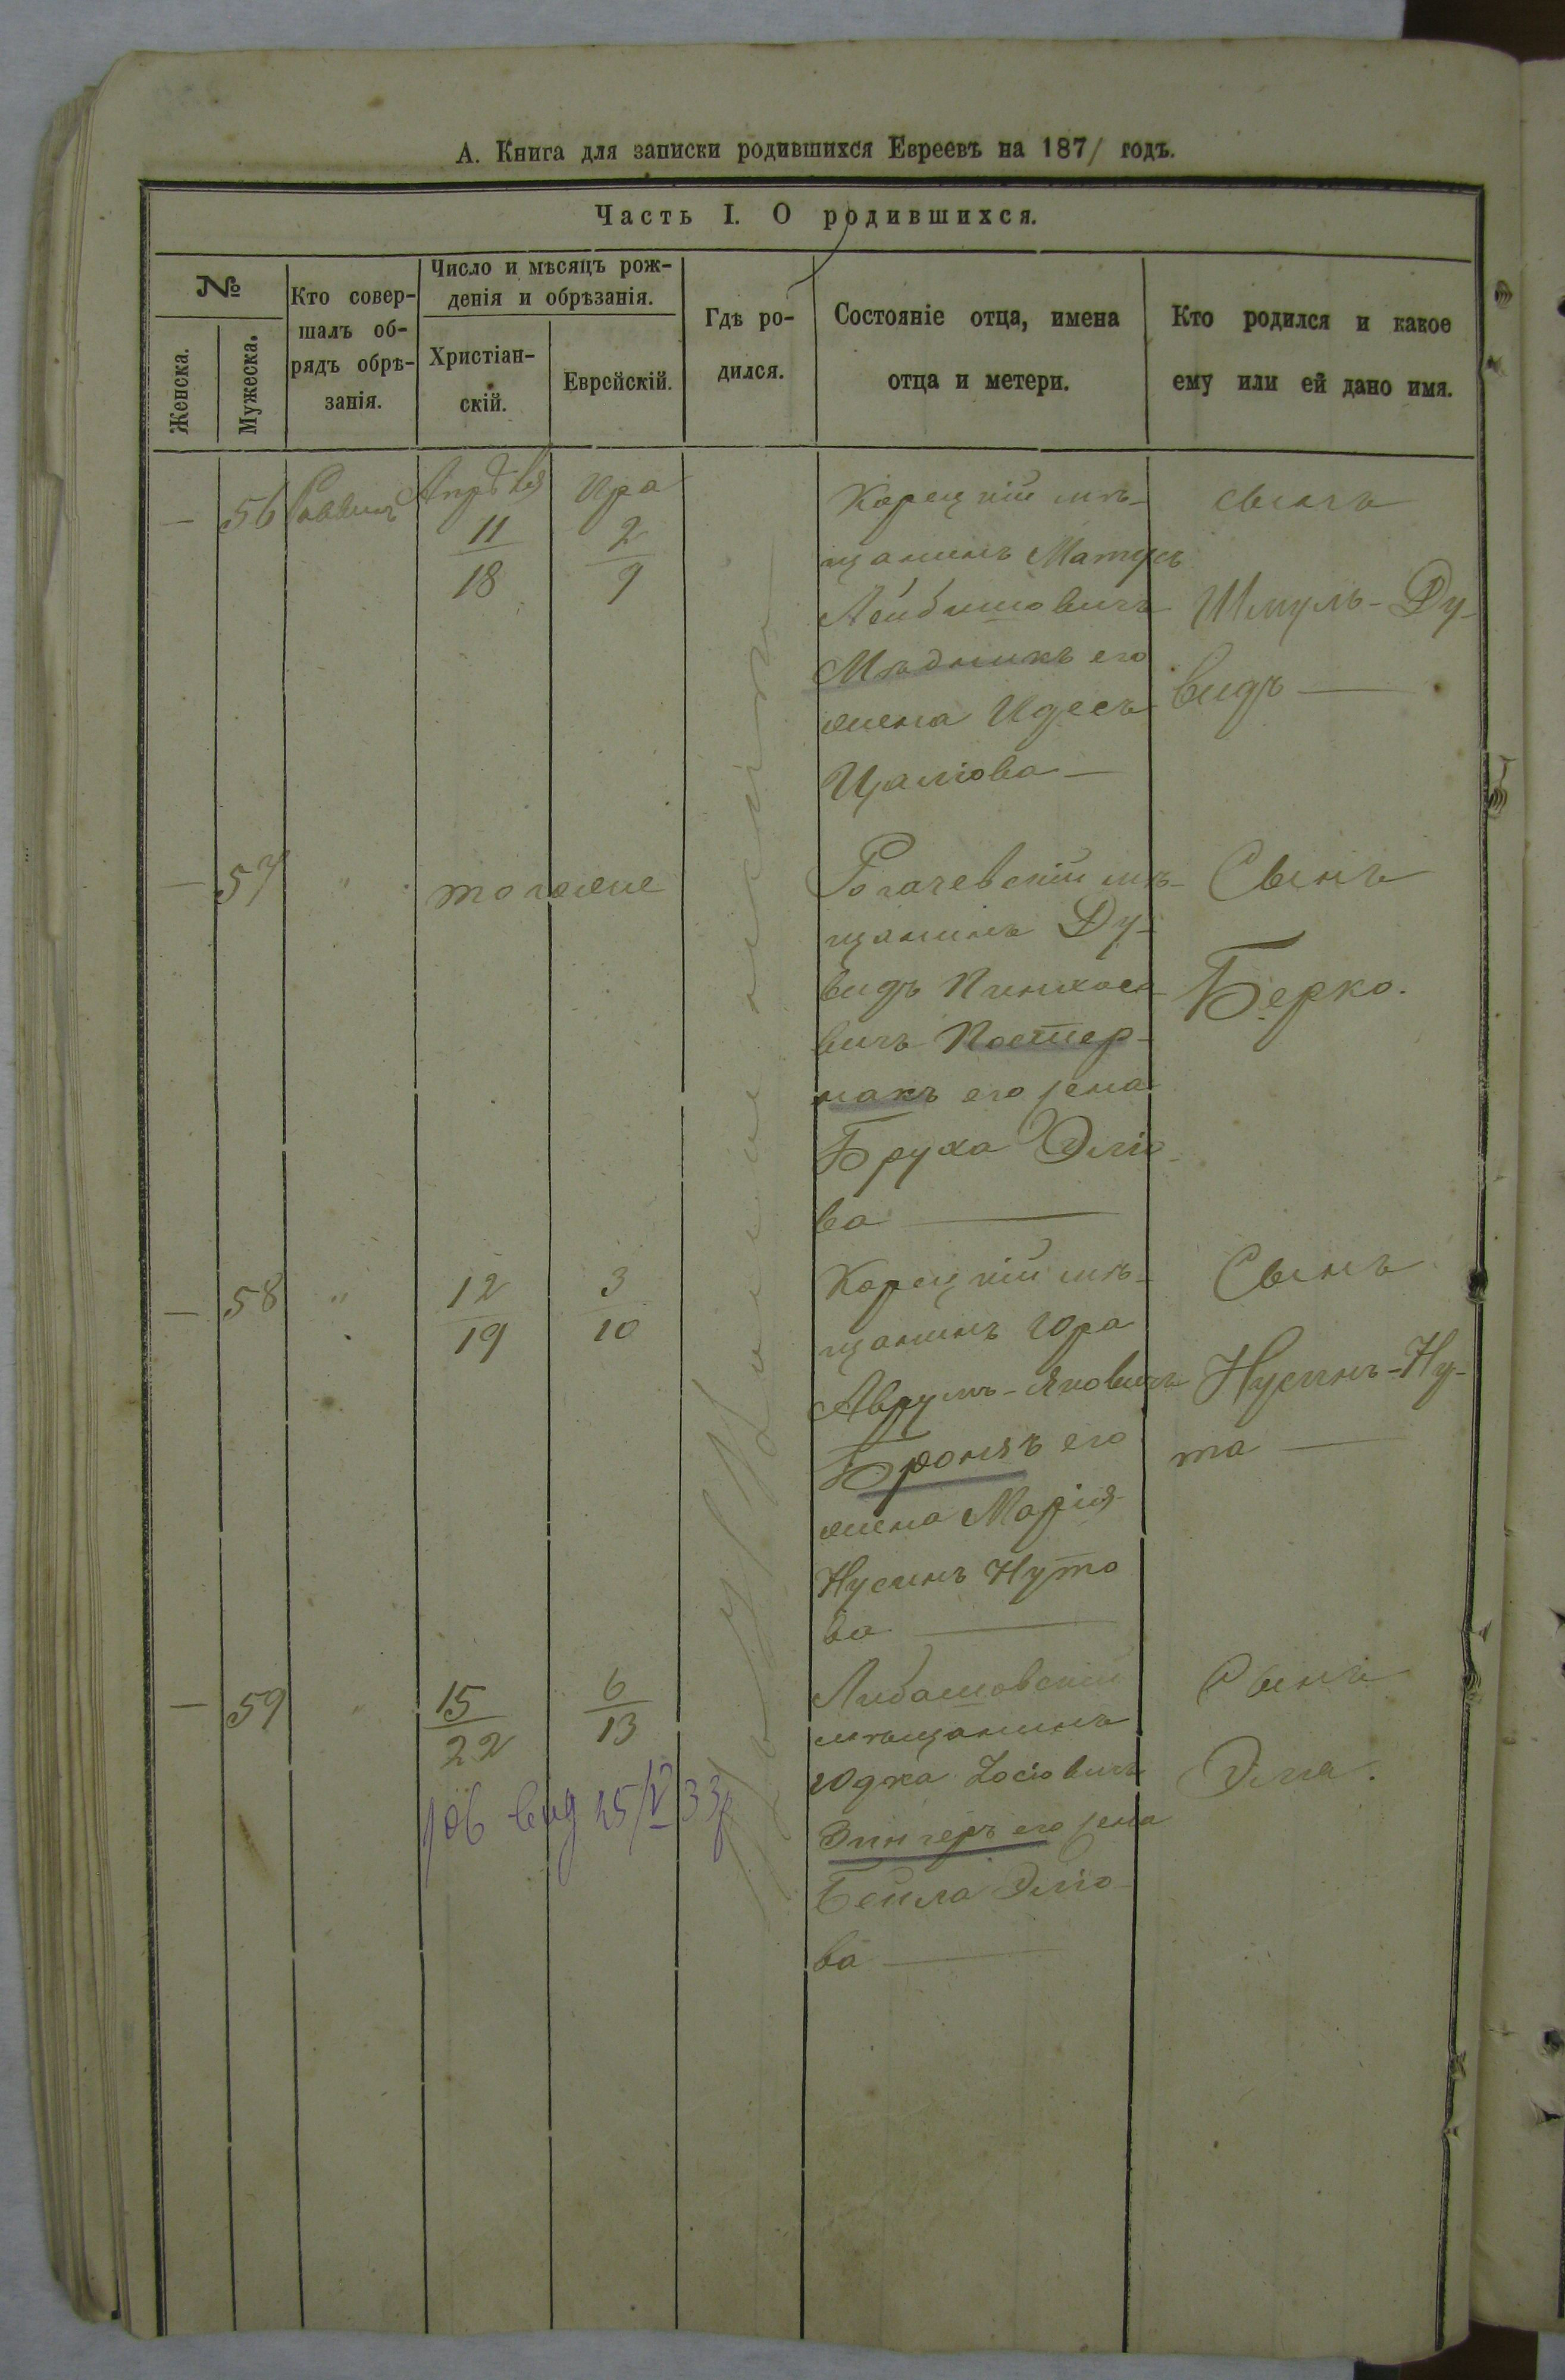 А. Книга для записки родившихся Евреевъ на 1871 годъ.
Часть I. О родившихся.
№
Женска.
Мужеска.
Кто совер-
шалъ об-
рядъ обрѣ-
занія.
Число и мѣсяцъ рож-
денія и обрѣзанія.
Христіан-
скій.
Еврейскій.
Гдѣ ро-
дился.
Состояніе отца, имена
отца и метери.
Кто родился и какое
ему или ей дано имя.
— 56 Раввинъ
Апрѣля
11
18
Ира
2
9
Корецкій мѣ-
щанинъ Матусъ
Лейбишовичъ
Мѣдникъ его
жена Идесъ
Цалiова —
сынъ
Шмуль-Ду-
видъ —
— 57 "
тогоже
Рогачевскій мѣ-
щанинъ Ду-
видъ Пинхасо-
вичъ Постер-
накъ его жена
Бруха Элiо-
ва —
Сынъ
Берко.
— 58 "
12
19
3
10
Корецкій мѣ-
щанинъ Юра
Аврумъ-Яковичъ
его
жена Марія
Нусинъ Нуто
ва —
Сынъ
Нусинъ-Ну-
та —
— 59 "
15
22
6
13
мѣщанинъ
Юдка Iосiовичъ
Зингеръ его жена
Бейла Элiо-
ва —
Сынъ
Элiа.
вид 25/V 33